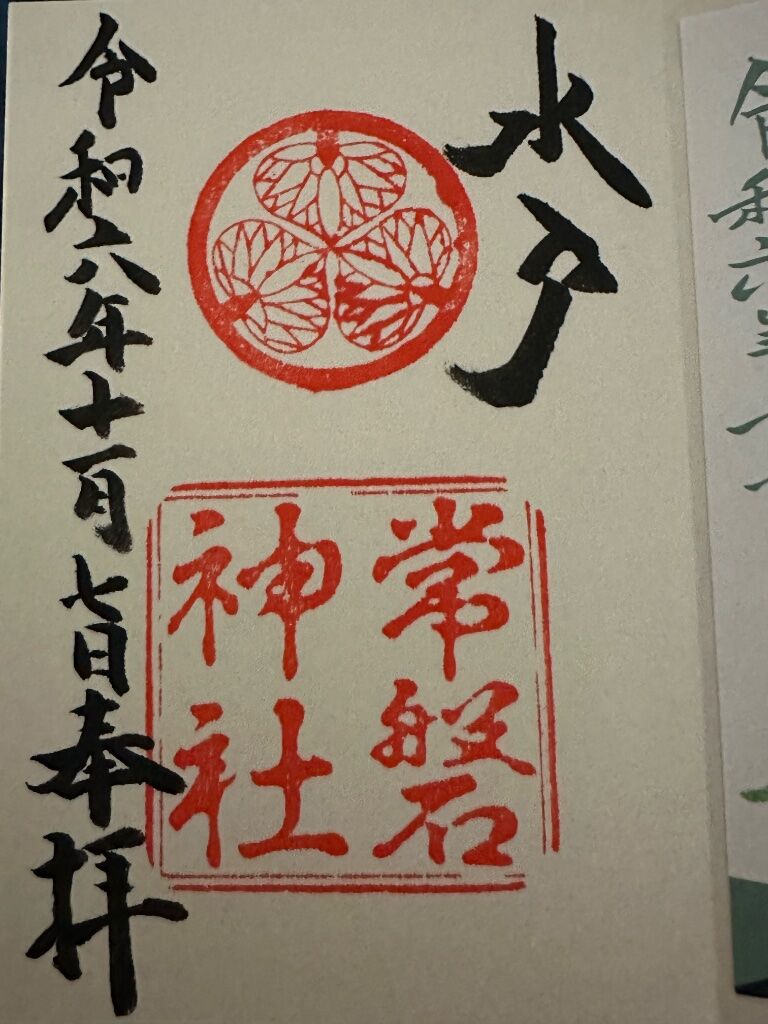 水戸
常磐
神社
令和六年十一月七日奉拝
令和六年十一